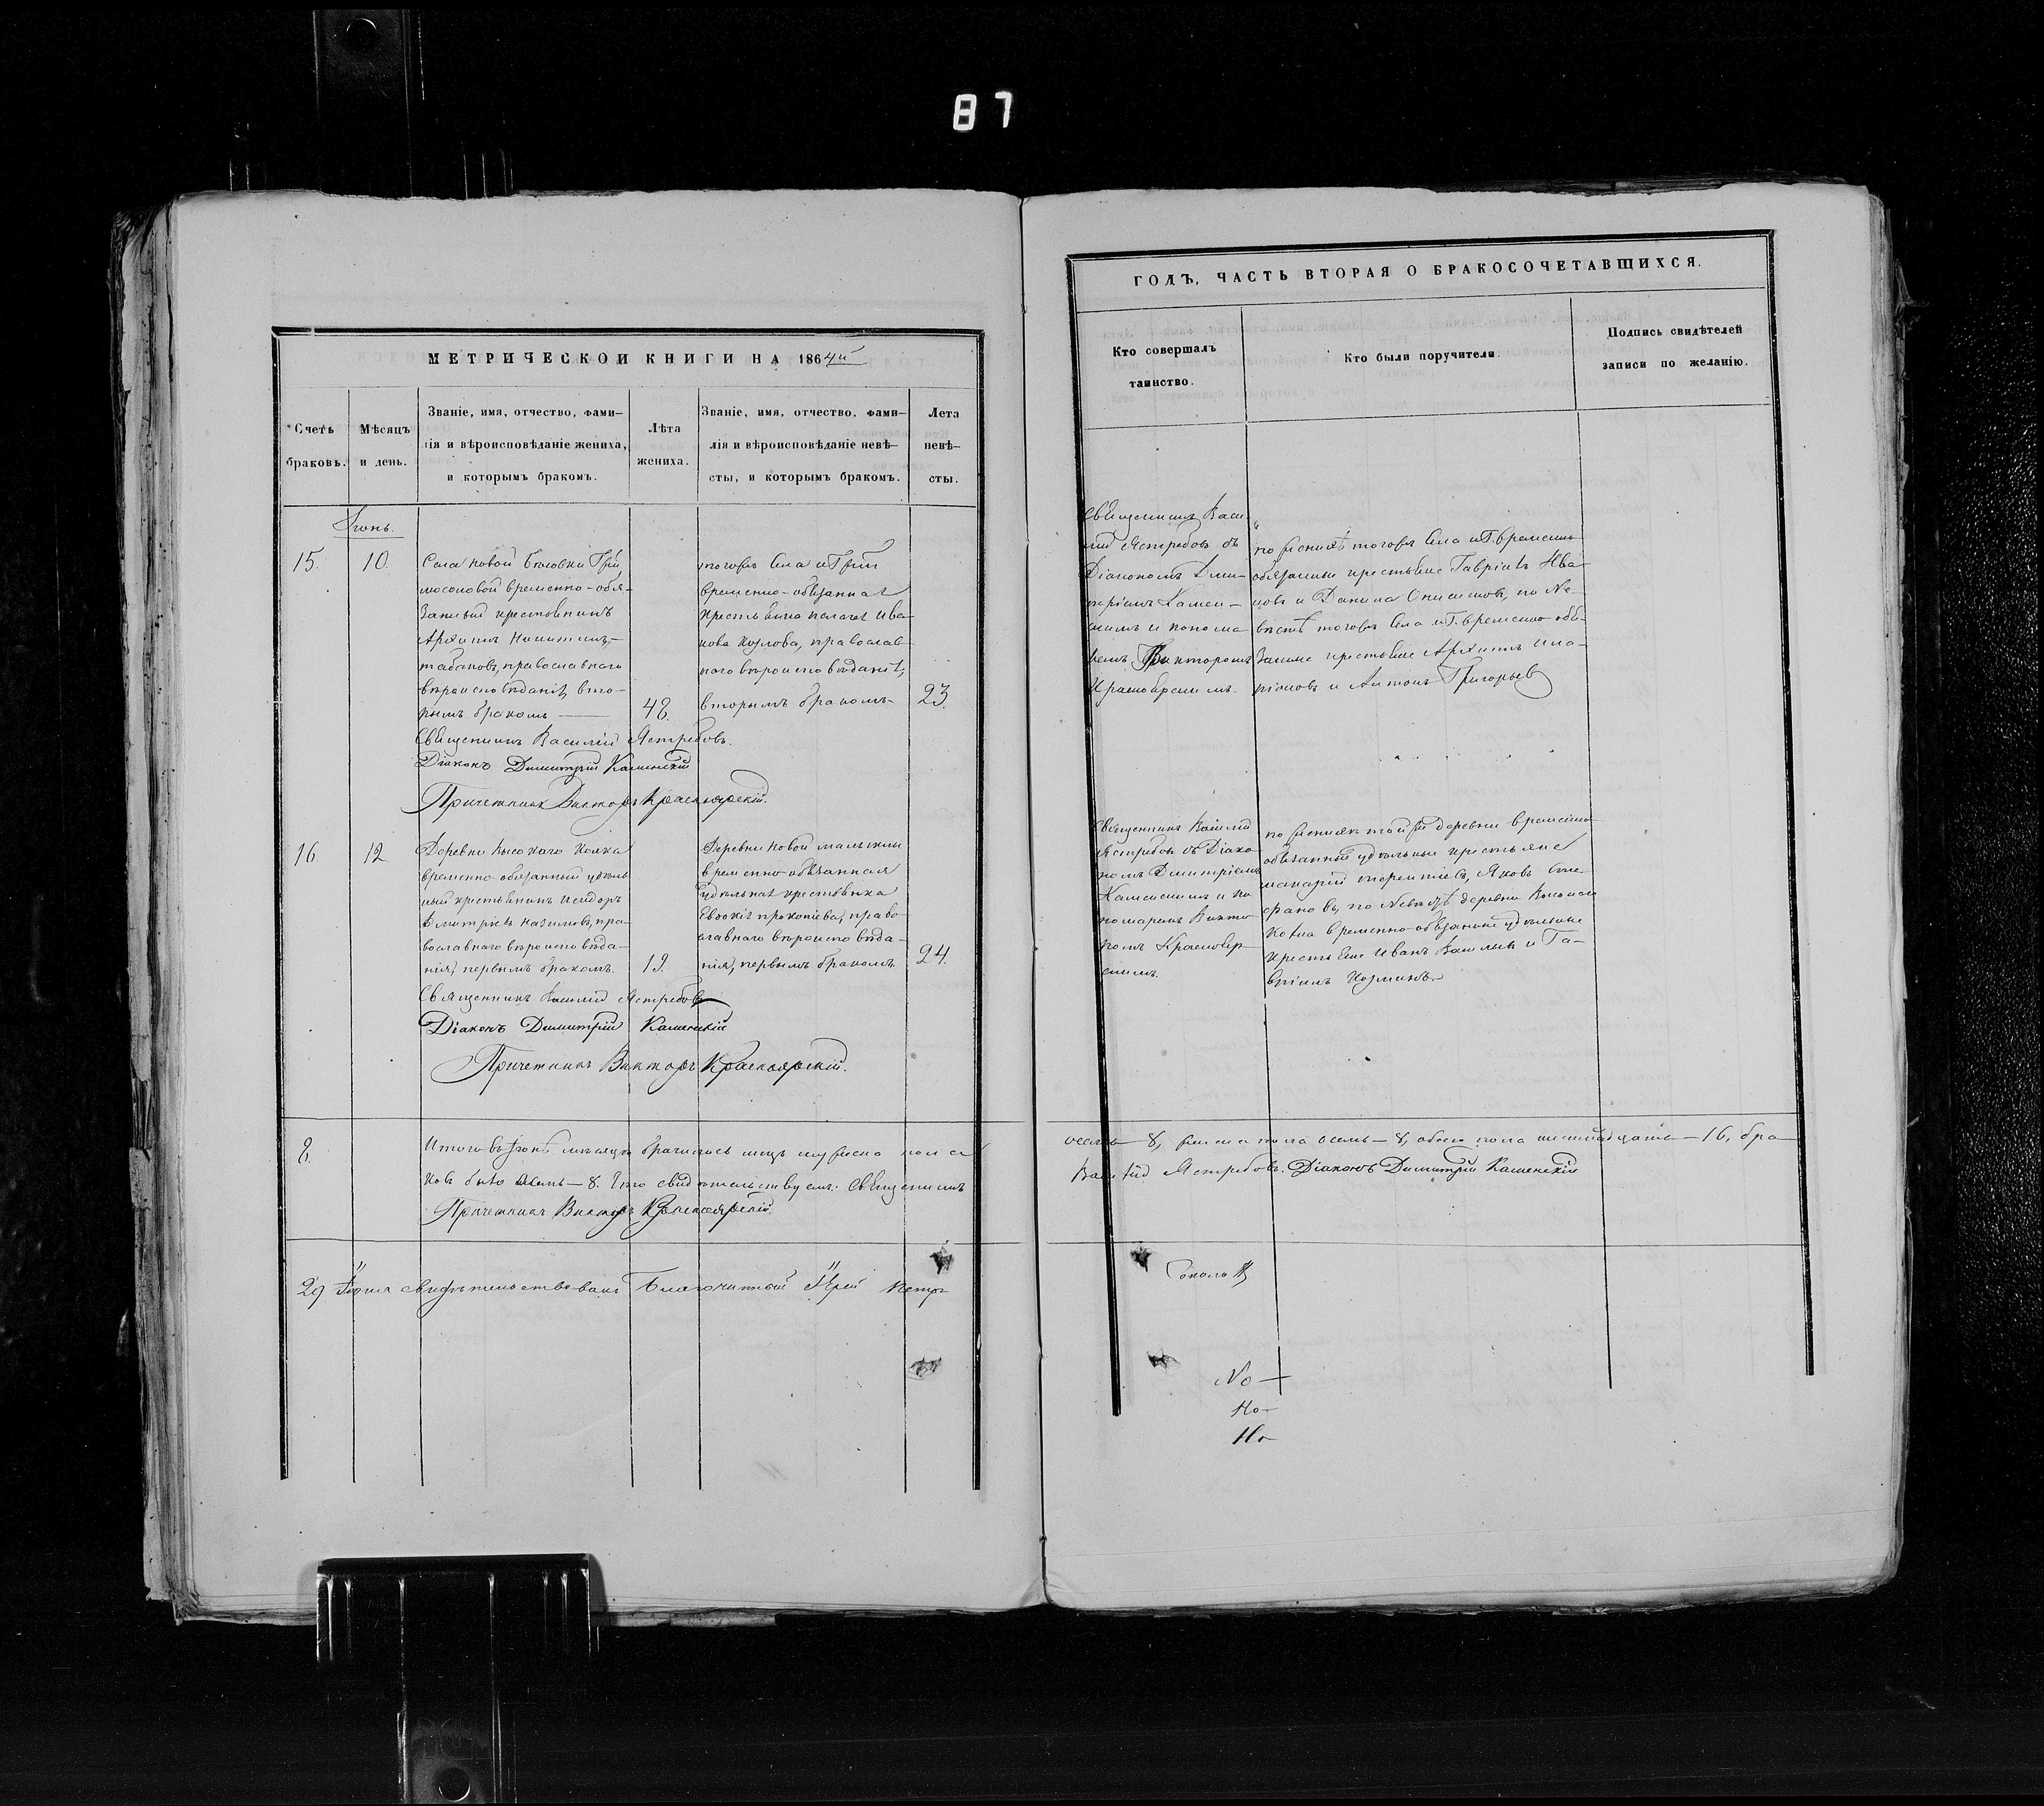 87
МЕТРИЧЕСКОЙ КНИГИ НА 1864й
Счетъ браковъ.
Мѣсяцъ и день.
Званіе, имя, отчество, фами-
лія и вѣроисповѣданіе жениха,
и которымъ бракомъ.
Лѣта
жениха.
Званіе, имя, отчество, фами-
лія и вѣроисповѣданіе невѣ-
сты, и которымъ бракомъ.
Лета
невѣ-
сты.
Іюнь.
15.
10.
Села Новой
временно-обя-
занный крестьянинъ
Архипъ Никитинъ
табаковъ, православнаго
вѣроисповѣданія, вто-
рымъ бракомъ
48.
тогожъ села
временно-обязанная
крестьянка Пелагея Ива-
нова Козлова, православ-
наго вѣроисповѣданія,
вторымъ бракомъ
23.
Священникъ Василій Ястребовъ.
Діаконъ Димитрій Каменскій
Причетникъ Викторъ Красноярскій.
16
12
Деревни Высокаго Колка
временно-обязанный удѣль
ный крестьянинъ Исидоръ
Димитріевъ пра-
вославнаго вѣроисповѣда-
нія, первымъ бракомъ.
19.
Деревни Новой Малыклы
временно-обязанная
удѣльная крестьянка
Евдокія Прокопіева, право-
славнаго вѣроисповѣда-
нія, первымъ бракомъ.
24.
Священникъ Василій Ястребовъ
Діаконъ Димитрій Каменскій
Причетникъ Викторъ Красноярскій.
8.
Итого въ Іюнѣ мѣсяцѣ бračилось лицъ мужеска пола
ковъ было осемь—8. Что свидѣтельствуемъ: Священникъ
Причетникъ Викторъ Красноярскій.
29 Іюня свидѣтельствовалъ Благочинный Іерей Петръ
ГОДЪ, ЧАСТЬ ВТОРАЯ О БРАКОСОЧЕТАВШИХСЯ.
Кто совершалъ
таинство.
Кто были поручители.
Подпись свидѣтелей
записи по желанію.
Священникъ Васи-
лій Ястребовъ съ
Діакономъ Дми-
тріемъ Камен-
скимъ и понома-
ремъ Викторомъ
Красноярскимъ.
по женихѣ тогожъ села временно
обязанные крестьяне Гавріилъ Ива-
новъ и Данила по не-
вѣстѣ тогожъ села временно-обя-
занные крестьяне Архипъ
и Антонъ Григорьевъ
Священникъ Василій
Ястребовъ съ Діако-
номъ Димитріемъ
Каменскимъ и по
номаремъ Викто-
ромъ Краснояр-
скимъ.
по женихѣ той же деревни временно-
обязанные удѣльные крестьяне
Макарій Терентіевъ, Яковъ Сте-
фановъ, по невѣстѣ деревни Высокаго
Колка временно-обязанные удѣльные
крестьяне Иванъ Васильевъ и Га-
вріилъ
осемь—8, женска пола осемь—8, обоего пола шестнадцать—16, бра
Василій Ястребовъ. Діаконъ Димитрій Каменскій
Соколовъ
No—
Но—
Но—